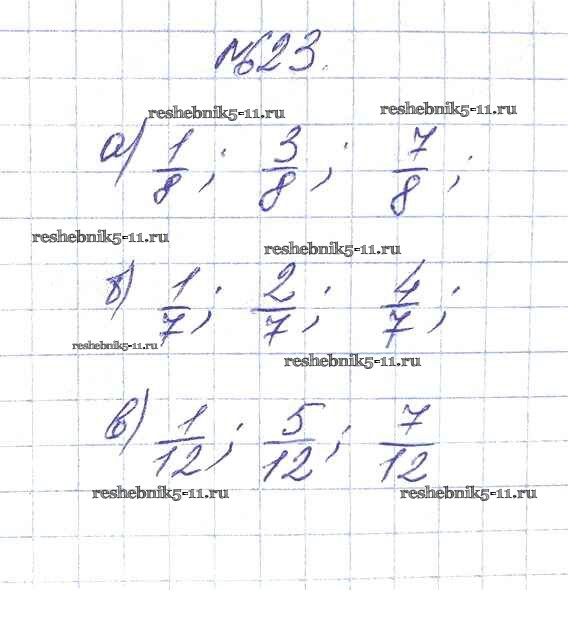 №623.
reshebnik5-11.ru reshebnik5-11.ru
а) 1/8; 3/8; 7/8;
reshebnik5-11.ru reshebnik5-11.ru
б) 1/7; 2/7; 4/7;
reshebnik5-11.ru reshebnik5-11.ru
в) 1/12; 5/12; 7/12
reshebnik5-11.ru reshebnik5-11.ru